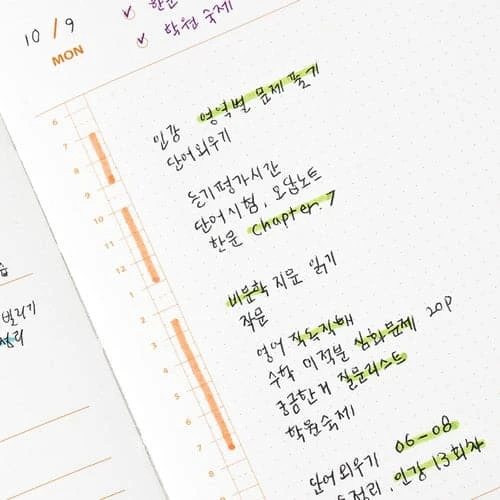 한문
학원 숙제
10 / 9
MON
6
7
8
9
10
11
12
1
2
3
4
5
6
7
8
인강 영역별 문제 풀기
단어 외우기
듣기평가시간
단어시험, 오답노트
한문 Chapter.7
비문학 지문 읽기
작문
영어 직독직해
수학 미적분 심화문제 20p
궁금한거 질문리스트
학원숙제
단어외우기 06-08
숙정리, 인강 13회차
빌리기
정리